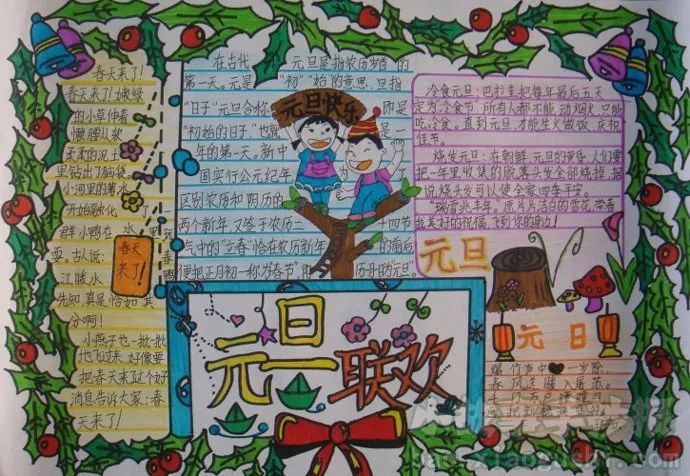 春天来了!
春天来了!嫩绿
的小草伸着
懒腰从软
柔柔的泥土
里钻出了脑袋
小河里的薄冰
开始融化了
群小鸭在水里
耍.古人说:
江暖水
先知,真是恰如其
分啊!
小燕子也一批批
地飞过来,好像要
把春天来了这个好
消息告诉大家:春
天来了!
春天
来了!
在古代 元旦是指农历岁首的
第一天。元是"初""始"的意思,旦指
"日子"元旦合称 即是
"初始的日子"也就 是一
年的第一天。新中
国实行公元纪年
区别农历和阴历的
两个新年,又鉴于农历二十四节
气中的"立春"恰在农历新年的前后
便把正月初一称为"春节"阳历一月一日为"元旦"。
元旦快乐
冷食元旦:巴拉圭把每年最后五天
定为"冷食节"所有人都不能动烟火,只能
吃冷食。直到元旦才能生火做饭,庆祝
佳节。
烧发元旦:在朝鲜,元旦的黄昏,人们要
把一年里收集的脱落头发全部烧掉,据
说烧头发可以使全家四季平安。
"瑞雪兆丰年。愿片片洁白的雪花,带着
我美好的祝福,飞到你的身边!
元旦
元旦联欢
元日
爆竹声中一岁除,
春风送暖入屠苏。